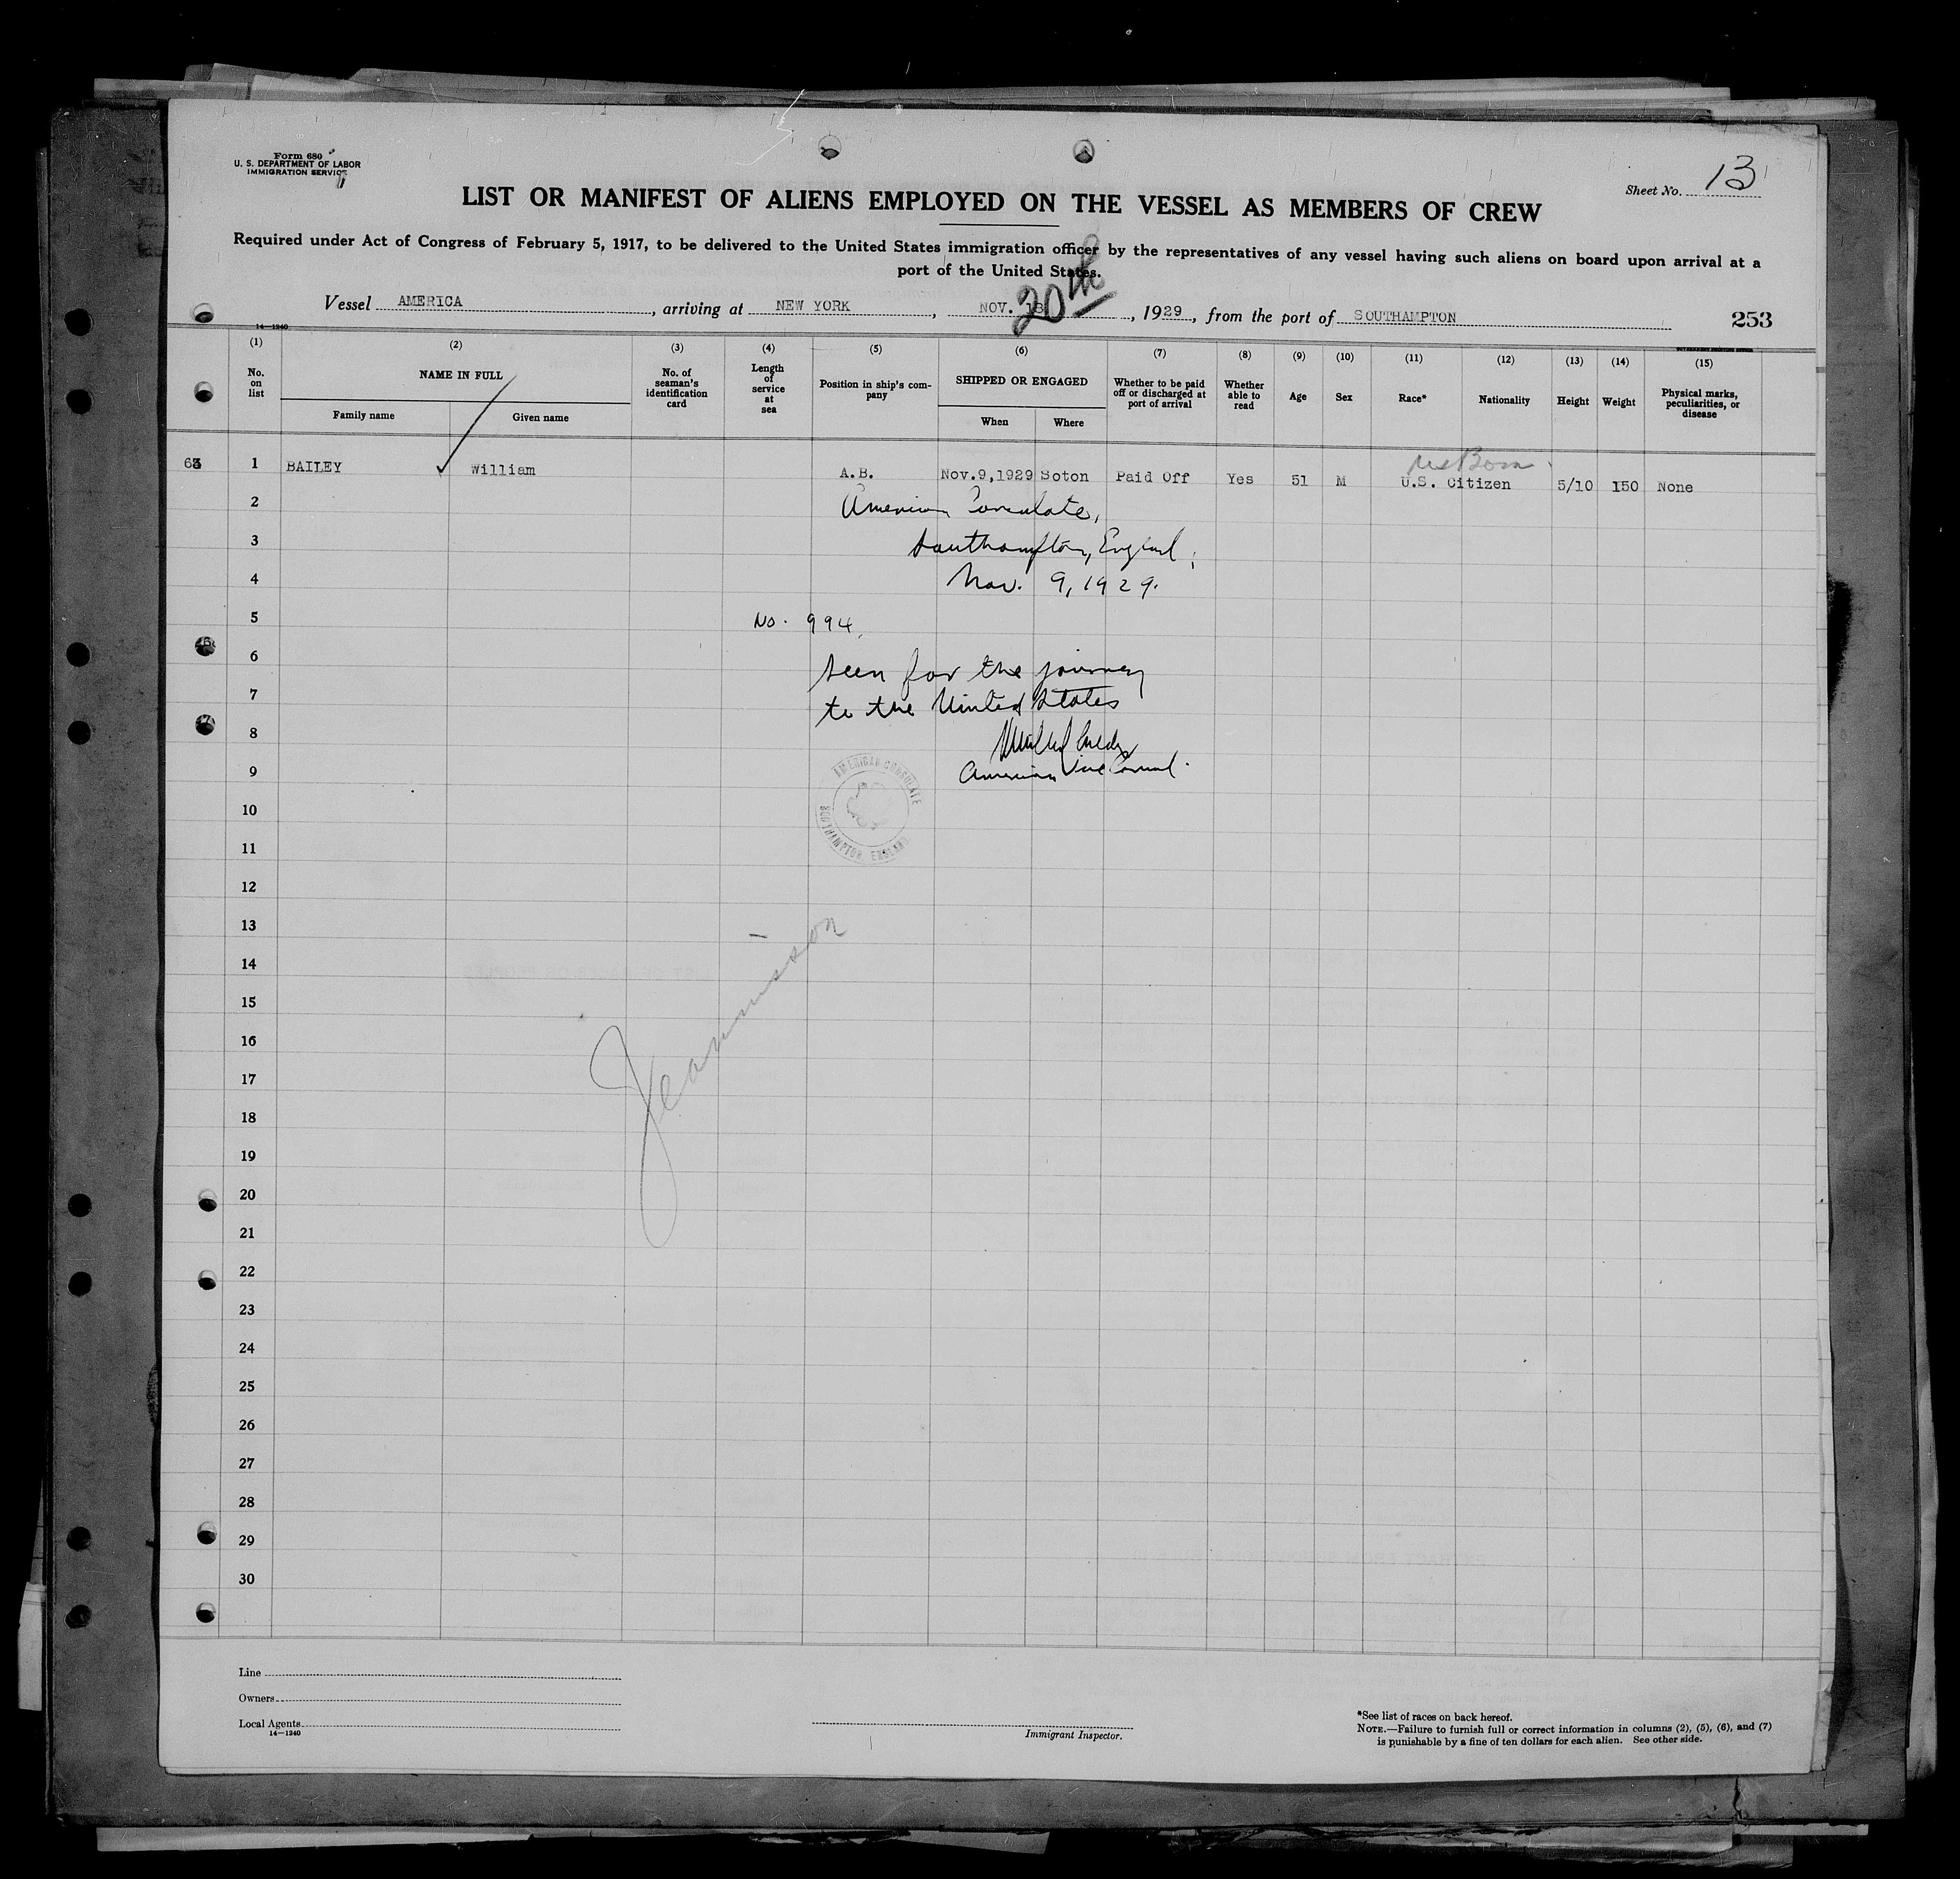 Form 680
U. S. DEPARTMENT OF LABOR
IMMIGRATION SERVICE
Sheet No. 13
LIST OR MANIFEST OF ALIENS EMPLOYED ON THE VESSEL AS MEMBERS OF CREW
Required under Act of Congress of February 5, 1917, to be delivered to the United States immigration officer by the representatives of any vessel having such aliens on board upon arrival at a
port of the United States.
Vessel AMERICA, arriving at NEW YORK, NOV. 18 20th, 1929, from the port of SOUTHAMPTON 253
14—1240
(1) (2) (3) (4) (5) (6) (7) (8) (9) (10) (11) (12) (13) (14) (15)
No. on list
NAME IN FULL
Family name
Given name
No. of seaman's identification card
Length of service at sea
Position in ship's company
SHIPPED OR ENGAGED
When
Where
Whether to be paid off or discharged at port of arrival
Whether able to read
Age
Sex
Race*
Nationality
Height
Weight
Physical marks, peculiarities, or disease
US Born
1 BAILEY William A.B. Nov.9,1929 Soton Paid Off Yes 51 M U.S. Citizen 5/10 150 None
2 American Consulate,
3 Southampton, England,
4 Nov. 9, 1929.
5 No. 994.
6 Seen for the journey
7 to the United States
8
9 American Vice Consul.
AMERICAN CONSULATE
SOUTHAMPTON, ENGLAND
10
11
12
13
14
15
16
17
18
19
20
21
22
23
24
25
26
27
28
29
30
Line
Owners
Local Agents
14—1240
Immigrant Inspector.
*See list of races on back hereof.
NOTE.—Failure to furnish full or correct information in columns (2), (5), (6), and (7)
is punishable by a fine of ten dollars for each alien. See other side.